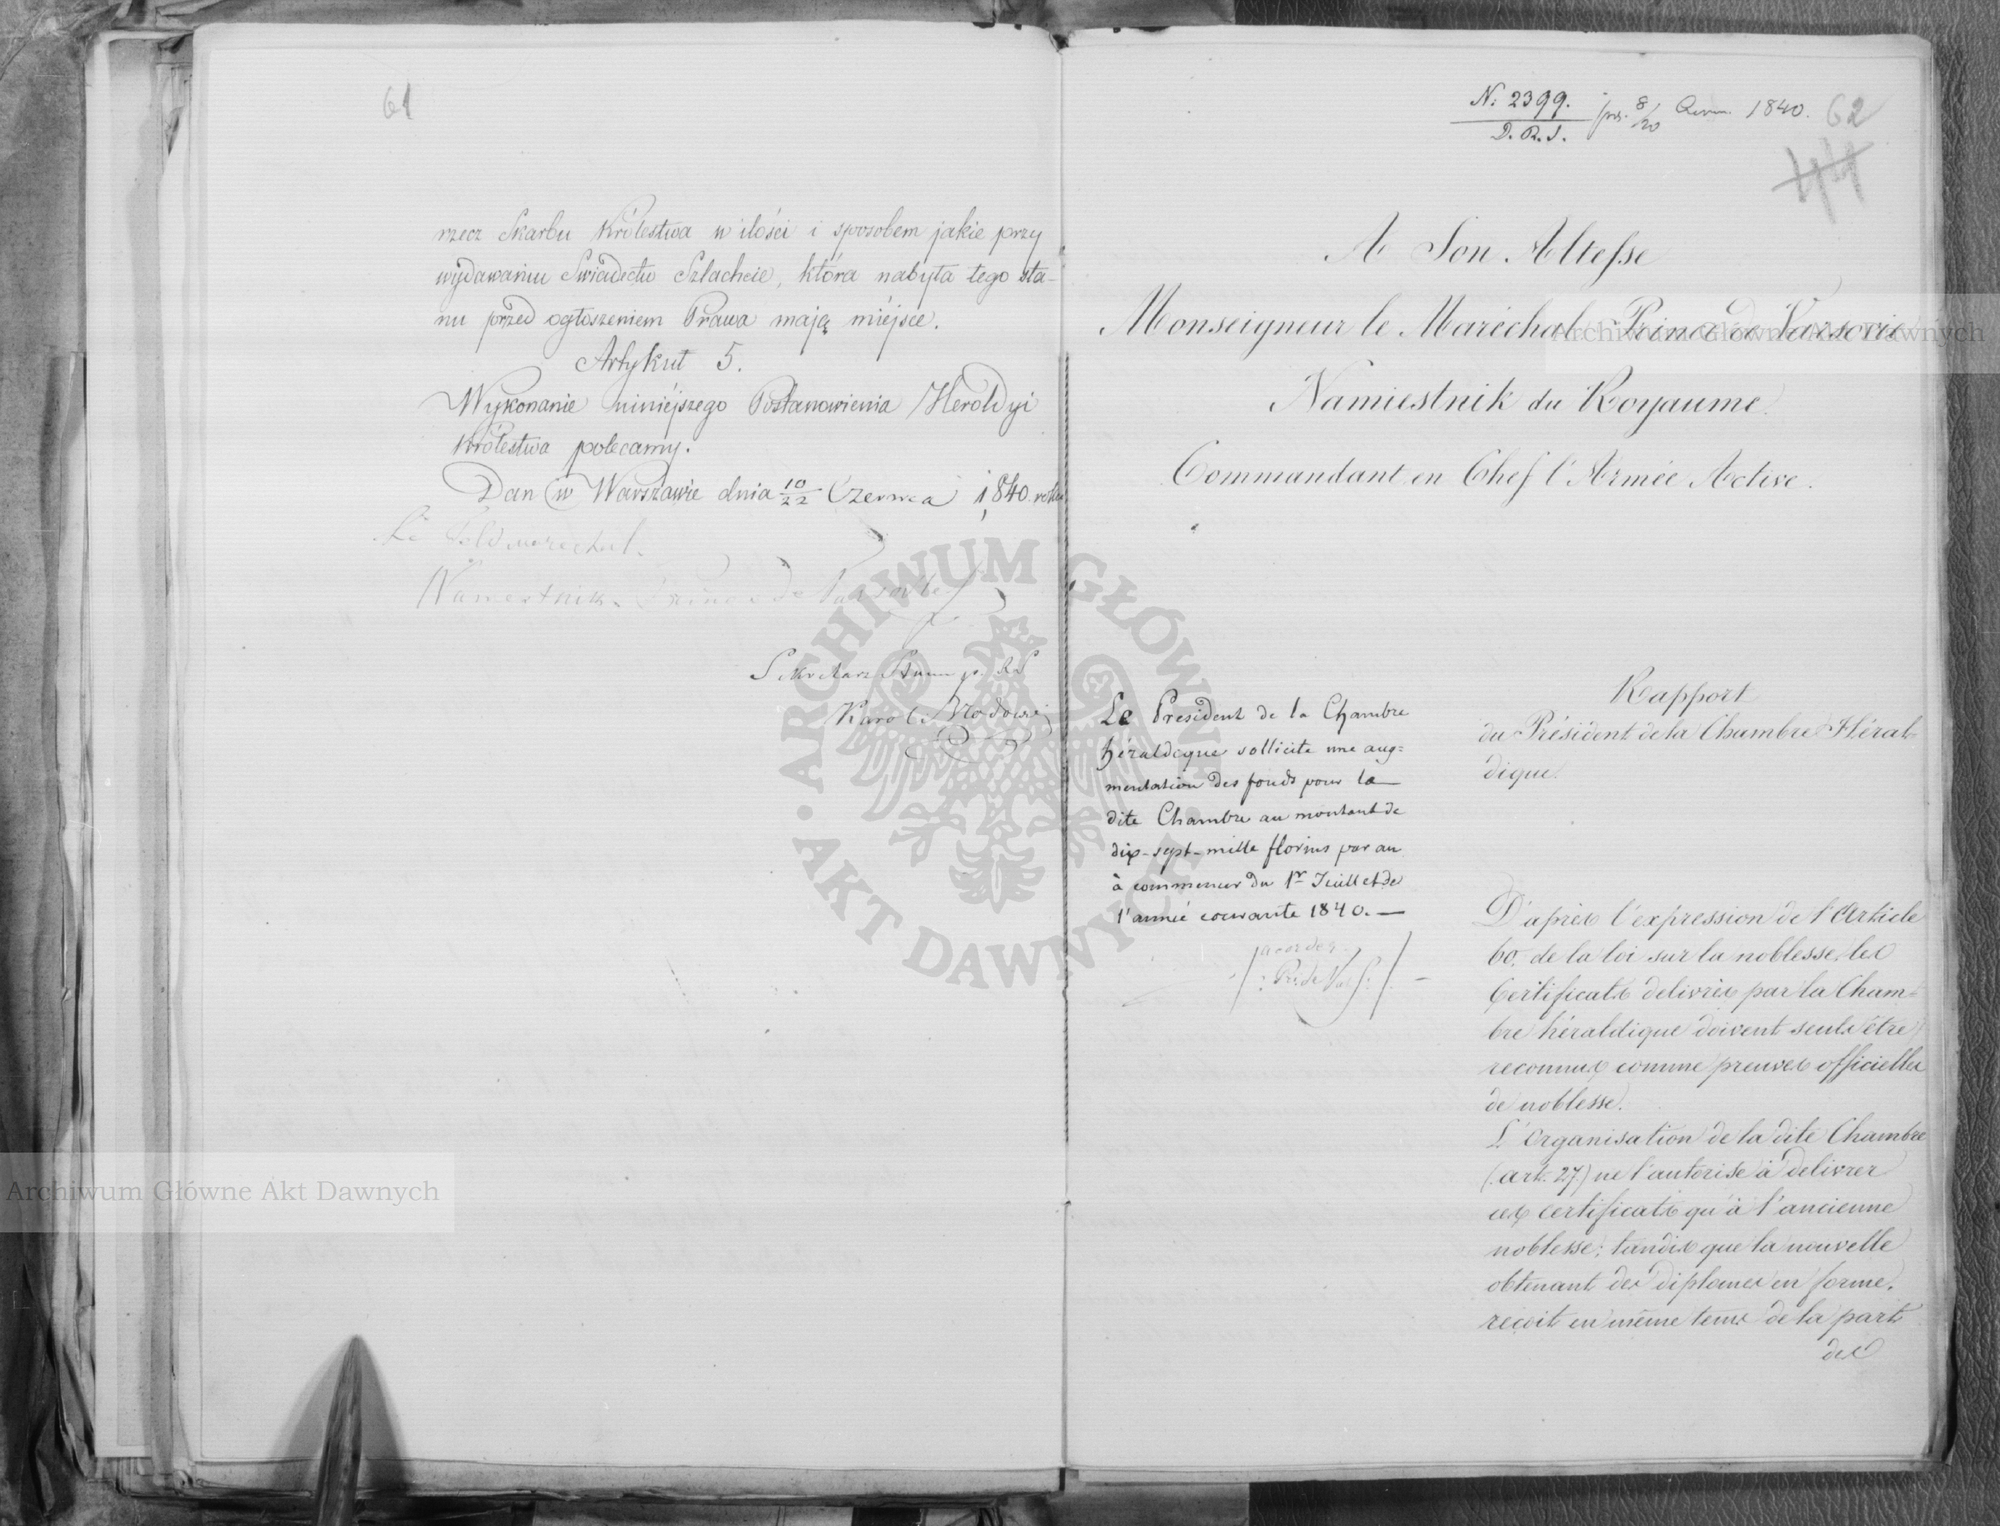 61
rzecz Skarbu Królestwa w ilości i sposobem jakie przy
wydawaniu Swiadectw Szlachcie, która nabyła tego sta-
nu przed ogłoszeniem Prawa mają miéjsce.
Artykuł 5.
Wykonanie niniéjszego Postanowienia Heroldyi
Królestwa polecamy.
Dan w Warszawie dnia 10/22 Czerwca 1840 roku
Le Feldmarechal.
Namestnik. Prince de Varsovie
Sekretarz Stanu
Karol
N: 2399.
D. R. S.
pres. 8/20 1840. 62
44
A Son Altesse
Monseigneur le Maréchal Prince de Varsovie
Namiestnik du Royaume
Commandant en Chef l'Armée Active.
Le President de la Chambre
héraldique sollicite une aug=
mentation des fonds pour la
dite Chambre au montant de
dix-sept-mille florins par an
à commencer du 1r Juillet de
l'année courante 1840. —
acorder
Pr: de Vars:
Rapport
du Président de la Chambre Héral-
dique.
D'après l'expression de l'Article
60. de la loi sur la noblesse, les
Certificats delivrés par la Cham-
bre héraldique doivent seuls être
reconnus comme preuves officielles
de noblesse.
L'organisation de la dite Chambre
(art. 27.) ne l'autorise à delivrer
ces certificats qu'à l'ancienne
noblesse; tandis que la nouvelle
obtenant des diplomes en forme,
reçoit en même tems de la part
des
Archiwum Główne Akt Dawnych
Archiwum Główne Akt Dawnych
ARCHIWUM GŁÓWNE AKT DAWNYCH